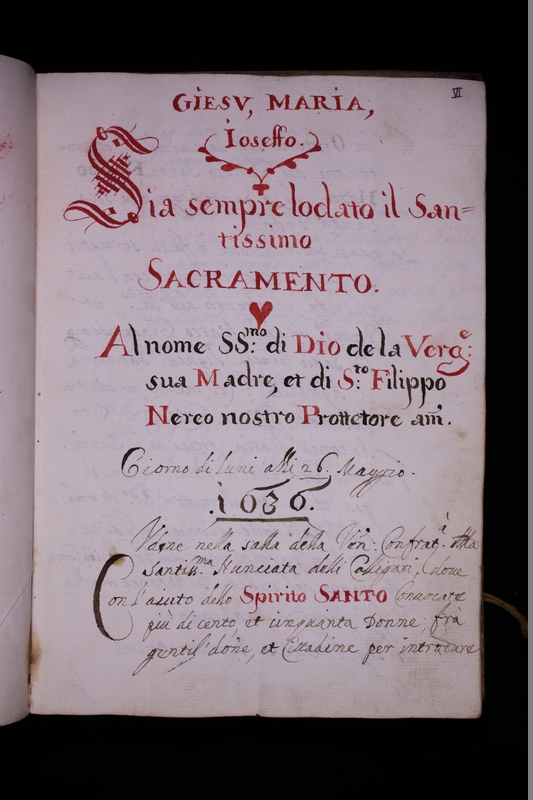 VI
GIESV, MARIA,
Ioseffo.
Sia sempre lodato il San=
tissimo
SACRAMENTO.
Al nome SS.mo di Dio de la Verg.e
sua Madre, et di S.to Filippo
Nereo nostro Prottetore am.
Giorno di luni alli 26. Maggio.
.1636.
nella salla della Ven: Confrat.a
Santiss.ma Nunciata deli doue
Con l'aiuto dello Spirito SANTO Conuocate
più di cento et cinquanta Donne frà
gentil' done, et Cittadine per introdure